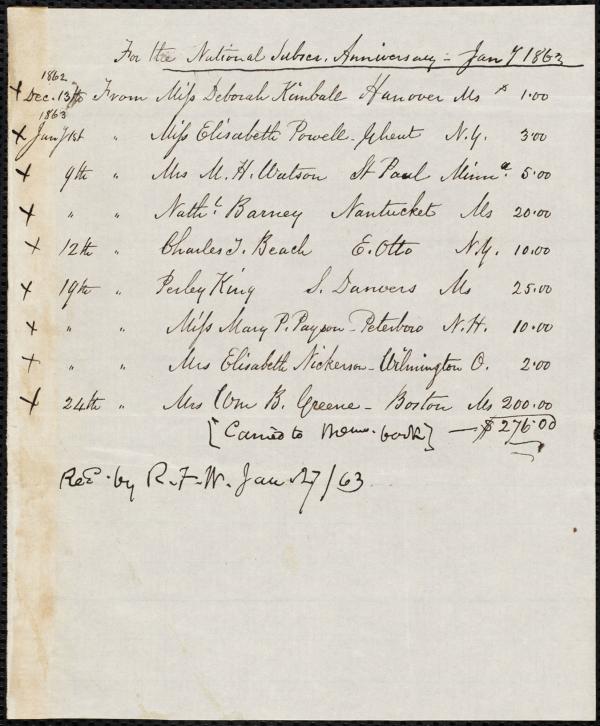 For the National Subscr. Anniversary - Jany 1863
1862
x Dec. 13th From Miss Deborah Kimball Hanover Ms 1.00
1863
x Jany 1st " Miss Elisabeth Powell - Ghent N.Y. 3.00
x 9th " Mrs M. H. Watson St Paul Minna. 5.00
x " " Nathl. Barney Nantucket Ms 20.00
x 12th " Charles J. Beach E. Otto N.Y. 10.00
x 19th " Perley King S. Danvers Ms 25.00
x " " Miss Mary P. Payson - Peterboro N.H. 10.00
x " " Mrs Elisabeth Nickerson - Wilmington O. 2.00
x 24th " Mrs Wm B. Greene - Boston Ms 200.00
[Carried to Mem. book] — $276.00
Recd. by R. F. W. Jan 27/63